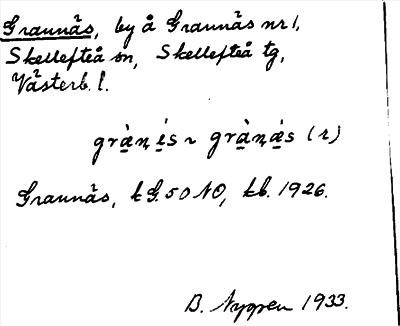 Graunäs, by å Graunäs nr 1,
Skellefteå sn, Skellefteå tg,
Västerb. l.
gràṇ ís ~ gràṇás (r)
Graunäs, k G. 50 NO, kb. 1926.
B. Nygren 1933.